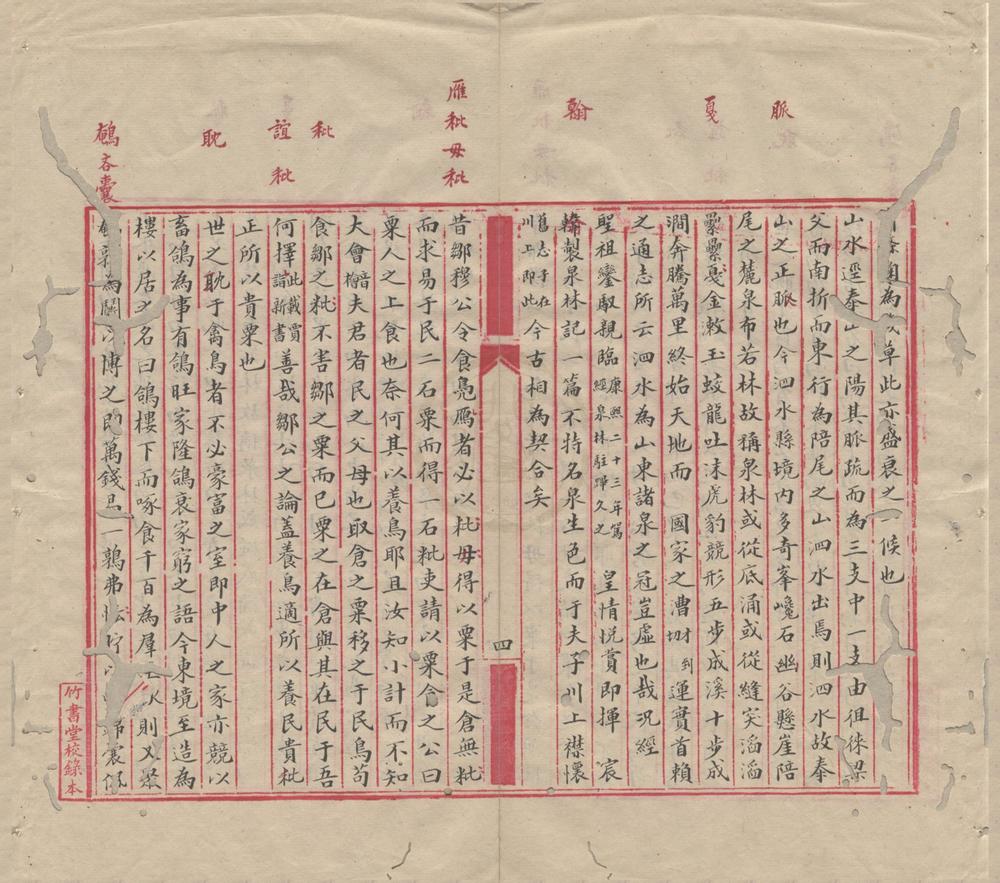 脈
戛
翰
雁秕毋秕
秕
誼秕
耽
鵪吝囊
為草此亦盛衰之一候也
山水逕泰山之陽其脈疏而為三支中一支由徂徠梁
父而南折而東行為陪尾之山泗水出焉則泗水故泰
山之正脈也今泗水縣境内多奇峯巉石幽谷懸崖陪
尾之麓泉布若林故稱泉林或從底涌或從縫突滔滔
纍纍戛金敕玉蛟龍吐沫虎豹競形五步成溪十步成
澗奔騰萬里終始天地而 國家之漕到運實首賴
之通志所云泗水為山東諸泉之冠豈虛也哉況經
聖祖鑾馭親臨康熙二十三年駕經泉林駐蹕久之 皇情悅賞即揮 宸
翰製泉林記一篇不特名泉生色而于夫子川上襟懷
舊志子在川上即此今古相為契合矣
四
昔鄒穆公令食鳧鴈者必以粃毋得以粟于是倉無粃
而求易于民二石粟而得一石粃吏請以粟食之公曰
粟人之上食也奈何其以養鳥耶且汝知小計而不知
大會檜暗夫君者民之父母也取倉之粟移之于民鳥苟
食鄒之粃不害鄒之粟而已粟之在倉與其在民于吾
何擇此載賈誼新書善哉鄒公之論蓋養鳥適所以養民貴粃
正所以貴粟也
世之耽于禽鳥者不必豪富之室即中人之家亦競以
畜鴿為事有鴿旺家隆鴿衰家窮之語今東境至造為
樓以居之名曰鴿樓下而啄食千百為羣則又
為關博之即萬錢易一鶉弗恡
竹書堂校錄本